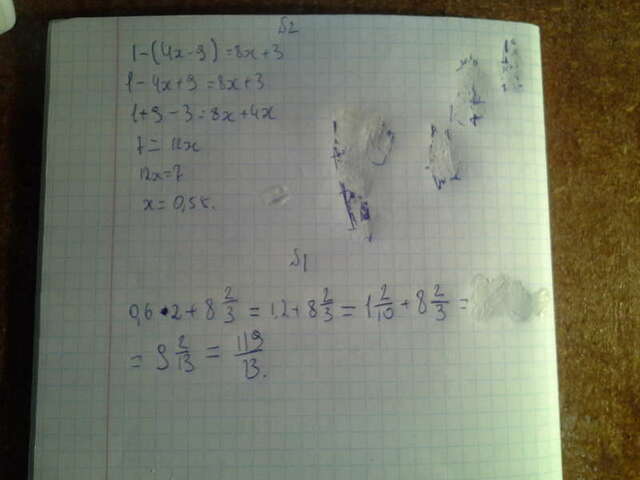 №2
1-(4x-9)=8x+3
1-4x+9=8x+3
1+9-3=8x+4x
7=12x
12x=7
x=0,58.
№1
0,6•2+8 2/3=1,2+8 2/3=1 2/10+8 2/3=
=9 2/13=119/13.